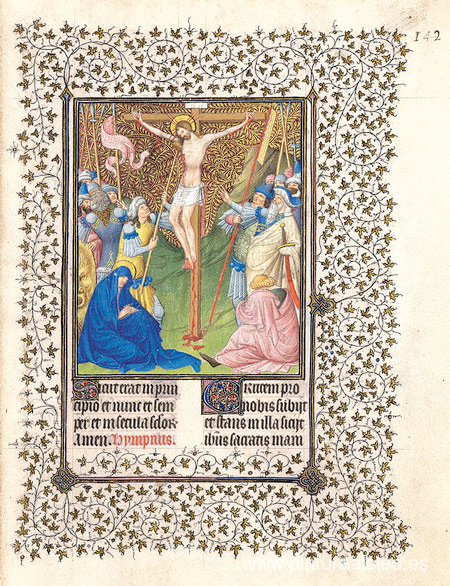 142
Sicut erat in prin
cipio et nunc et sem
per et in secula sclor
amen. Ympnus.
Crucem pro
nobis subiit
et stans in illa sicijt
ihus sacratis mani